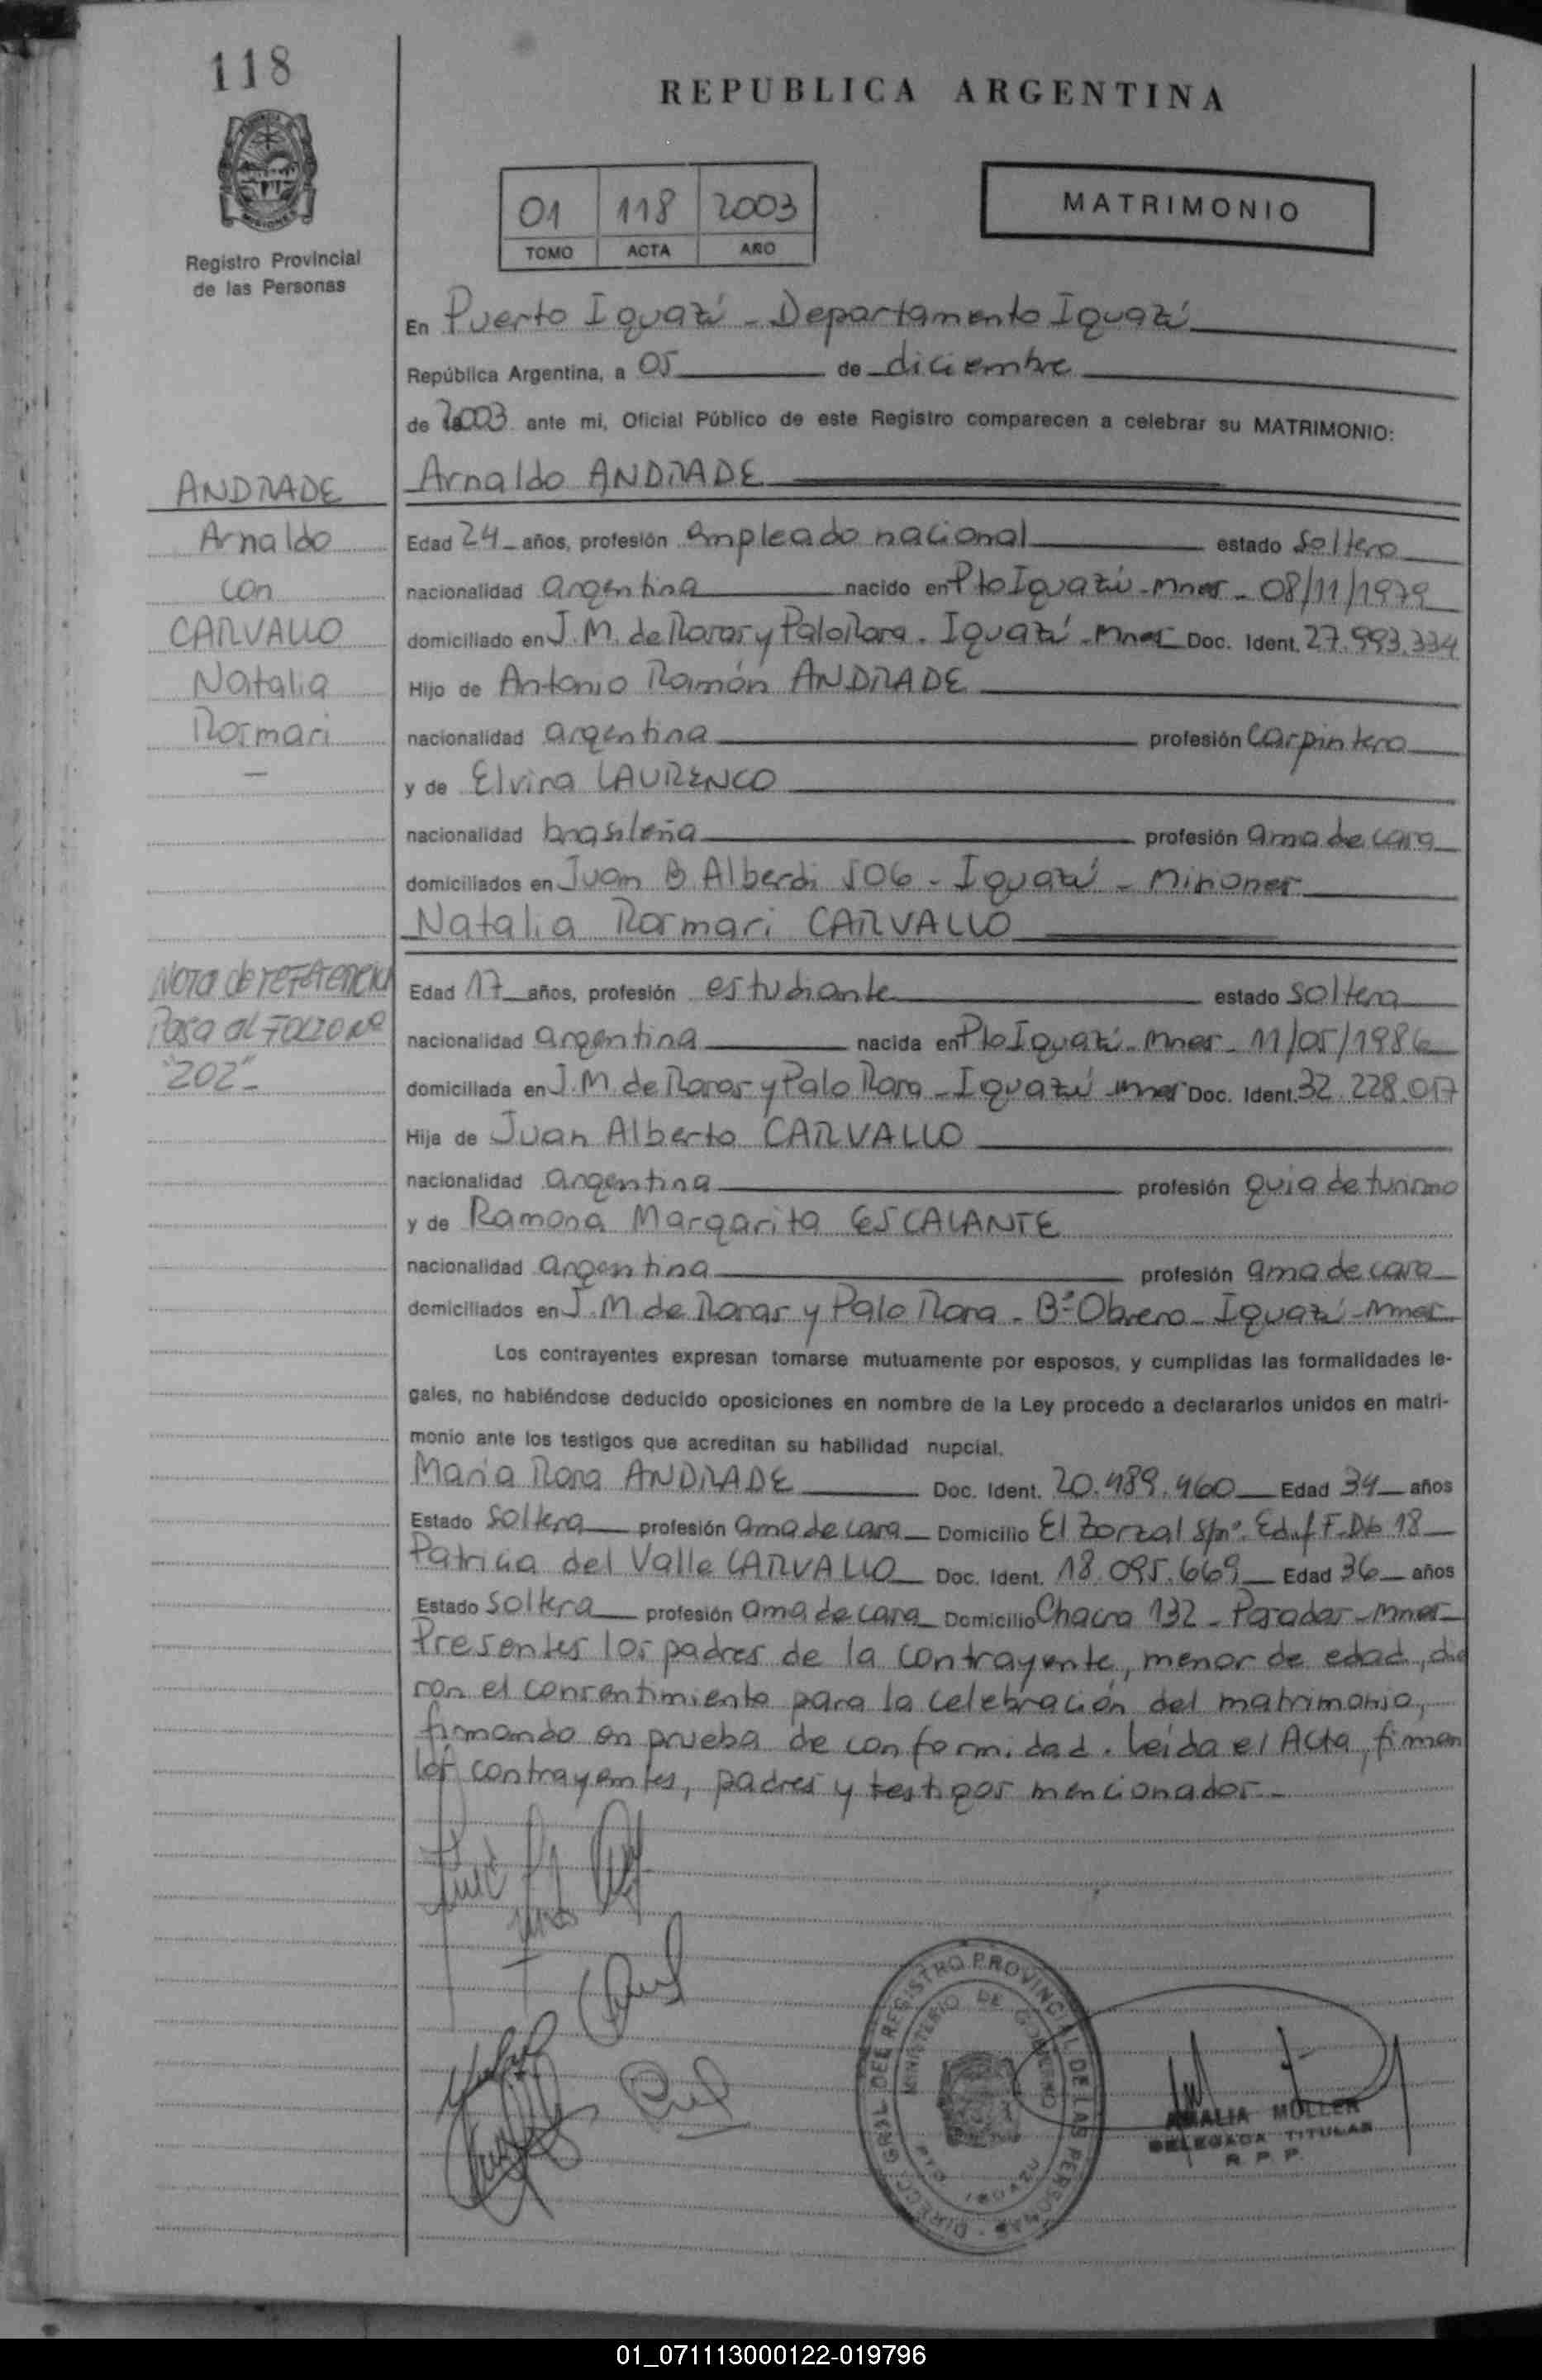 118
REPUBLICA ARGENTINA
Registro Provincial
de las Personas
01 118 2003
TOMO ACTA AÑO
MATRIMONIO
En Puerto Iguazú - Departamento Iguazú
República Argentina, a 05 de diciembre
de 2003 ante mi, Oficial Público de este Registro comparecen a celebrar su MATRIMONIO:
ANDRADE
Arnaldo
con
CARVALLO
Natalia
Rosmari
Arnaldo ANDRADE
Edad 24 años, profesión empleado nacional estado soltero
nacionalidad argentina nacido en Pto Iguazú - Mnes - 08/11/1979
domiciliado en J. M. de Rosas y Palo Rosa - Iguazú - Mnes Doc. Ident. 27.993.334
Hijo de Antonio Ramón ANDRADE
nacionalidad argentina profesión carpintero
y de Elvira LAURENCO
nacionalidad brasileña profesión ama de casa
domiciliados en Juan B. Alberdi 506 - Iguazú - Misiones
Natalia Rosmari CARVALLO
NOTA de REFERENCIA
Pasa al FOLIO Nº
"202"-
Edad 17 años, profesión estudiante estado soltera
nacionalidad argentina nacida en Pto Iguazú - Mnes - 11/05/1986
domiciliada en J. M. de Rosas y Palo Rosa - Iguazú - Mnes Doc. Ident. 32.228.017
Hija de Juan Alberto CARVALLO
nacionalidad argentina profesión guia de turismo
y de Ramona Margarita ESCALANTE
nacionalidad argentina profesión ama de casa
domiciliados en J. M. de Rosas y Palo Rosa - Bº Obrero - Iguazú - Mnes
Los contrayentes expresan tomarse mutuamente por esposos, y cumplidas las formalidades le-
gales, no habiéndose deducido oposiciones en nombre de la Ley procedo a declararlos unidos en matri-
monio ante los testigos que acreditan su habilidad nupcial.
María Rosa ANDRADE Doc. Ident. 20.489.460 Edad 34 años
Estado soltera profesión ama de casa Domicilio El Zorzal S/nº. Edif F. Db 18
Patricia del Valle CARVALLO Doc. Ident. 18.095.669 Edad 36 años
Estado soltera profesión ama de casa Domicilio Chacra 132 - Posadas - Mnes
Presentes los padres de la contrayente, menor de edad, die
ron el consentimiento para la celebración del matrimonio,
firmando en prueba de conformidad. Leída el Acta, firman
los contrayentes, padres y testigos mencionados.-
DIRECC. GRAL. DEL REGISTRO PROVINCIAL DE LAS PERSONAS
MINISTERIO DE GOBIERNO
PTO IGUAZU
AMALIA MULLER
DELEGADA TITULAR
R. P. P.
01_071113000122-019796